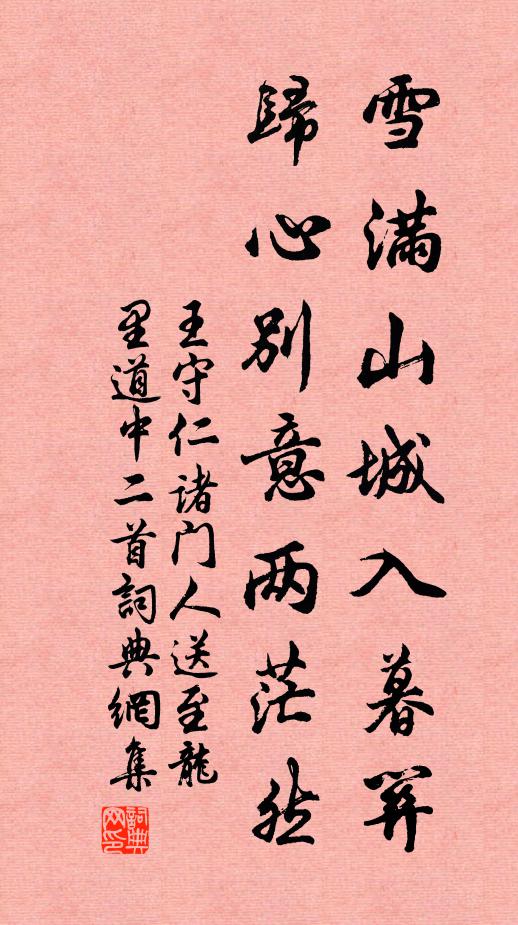 雪满山城入暮天
歸心別意两茫然
王守仁诸门人送至龍
里道中二首詞典網集
詞典
网印